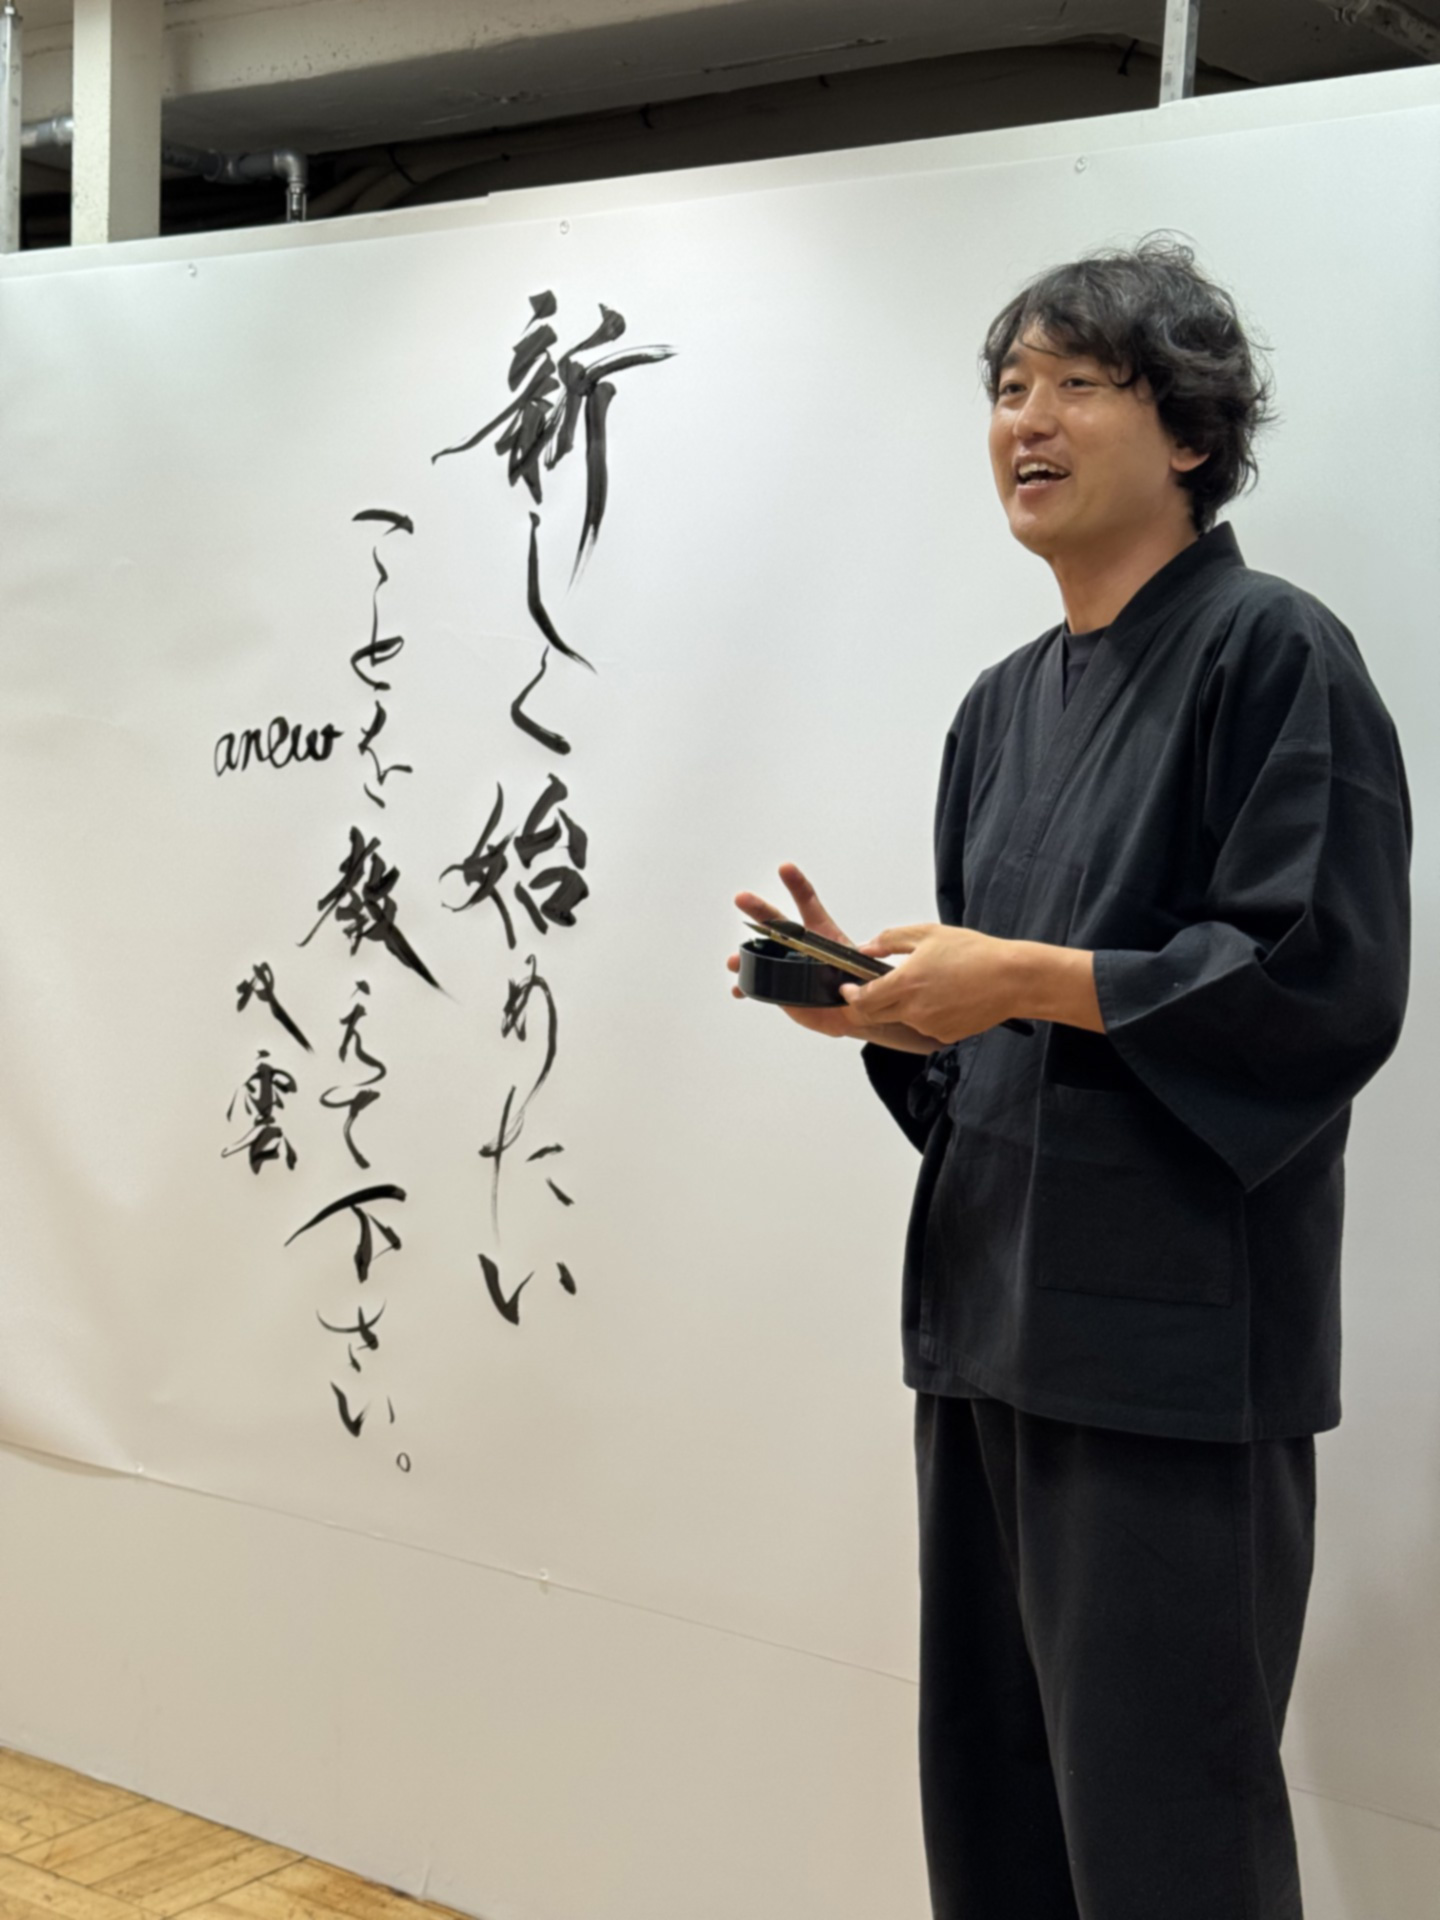 新しく始めたい
ことを教えて下さい。
anew
雲